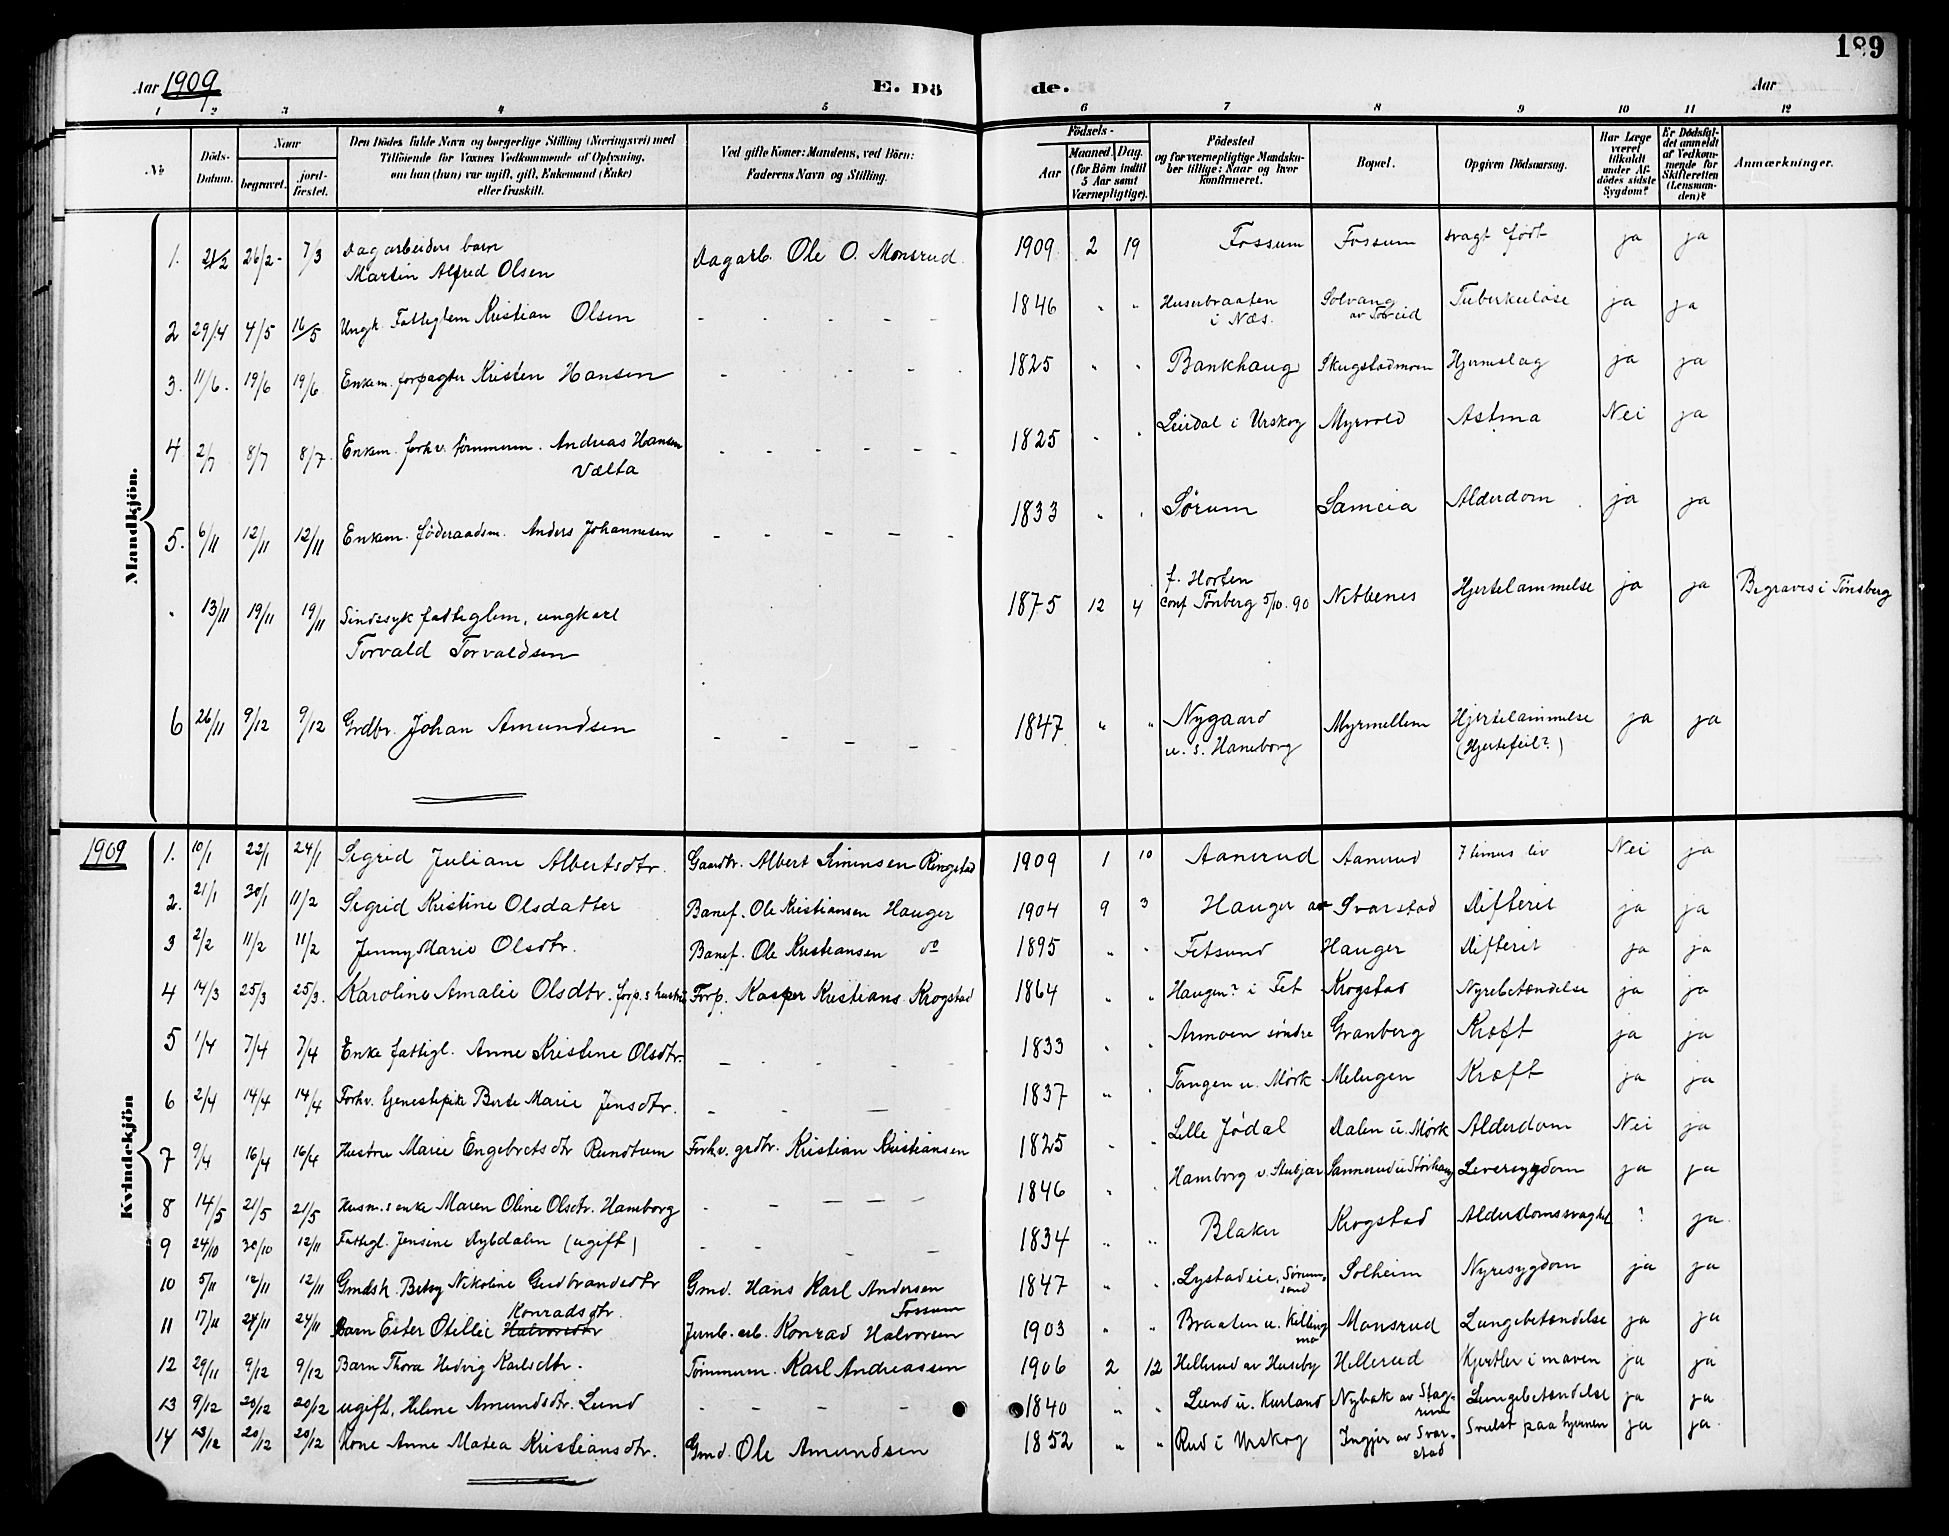 189
Aar 1909
E. Dö
de.
Aar
1 2 3 4 5 6 7 8 9 10 11 12
No
Döds-Datum.
Naar
begravet.
jord-fæstet.
Den Dödes fulde Navn og borgerlige Stilling (Næringsvei) med
Tilföiende for Voxnes Vedkommende af Oplysning,
om han (hun) var ugift, gift, Enkemand (Enke)
eller fraskilt.
Ved gifte Koner: Mandens, ved Börn:
Faderens Navn og Stilling.
Födsels-
Aar
Maaned. Dag.
(for Börn indtil
5 Aar samt
Værnepligtige).
Födested
og for værnepligtige Mandska-
ber tillige: Naar og hvor
konfirmeret.
Bopæl.
Opgiven Dödsaarsag.
Har Læge
været
tilkaldt
under Af-
dödes sidste
Sygdom?
Er Dödsfal-
det anmeldt
af Vedkom-
mende for
Skifteretten
(Lensman-
den)?
Anmærkninger.
Mandkjön.
1. 21/2 26/2 7/3 Dagarbeiders barn
Martin Alfred Olsen Dagarb. Ole O. Monsrud 1909 2 19 Fossum Fossum svagt født ja ja
2 29/4 4/5 16/5 Ungk. Fattiglem Kristian Olsen - - - - - 1846 " " Huserbraaten
i Næs. Solvang
av Toreid Tuberkuløse ja ja
3. 11/6. 19/6 19/6 Enkem. forpagter Kristen Hansen - - - 1825 " " Bankhaug Skugstadmoen Hjerneslag ja ja
4 2/7 8/7 8/7. Enkem. forhv. tømmerm. Andreas Hansen
Vælta - - - - - - 1825 " " Liudal i Urskog Myrvold Astma Nei ja
5. 6/11 12/11 12/11 Enkem. føderaadsm. Anders Johannesen - - - - - 1833 " " Sørum Sameia Alderdom ja ja
" 13/11 19/11 19/11 Sindssyk fattiglem, ungkarl
Torvald Torvaldsen 1875 12 4 f. Horten
conf Tønberg 5/10. 90 Nebbenes Hjertelammelse ja ja Begraves i Tønsberg
6 26/11 9/12 9/12 Grdbr. Johan Amundsen - - - - - 1847 " " Nygaard
u. s. Haneborg Myrmellem Hjertelammelse
(Hjertefeil?) ja ja
1909
Kvindekjön
1. 10/1 22/1 24/1 Sigrid Juliane Albertsdtr. Gaardbr. Albert Simensen Ringstad 1909 1 10 Aanerud Aanerud 7 timers liv Nei ja
2. 21/1 30/1 11/2 Sigrid Kristine Olsdatter Banef. Ole Kristiansen Hauger 1904 9 3 Hauger av Svarstad Difterit ja ja
3 2/2 11/2 11/2 Jenny Marie Olsdtr. Banef. Ole Kristiansen do 1895 " " Fetsund Hauger Difterit ja ja
4 14/3 25/3 25/3. Karoline Amalie Olsdtr. forp.s hustru Forp. Kasper Kristians. Krogstad 1864 " " Haugen? i Fet Krogstad Nyrebetændelse ja ja
5 1/4 7/4 7/4 Enke fattigl. Anne Kristine Olsdtr. - - - - 1833 " " Armoen søndre Granberg Kræft ja ja
6 2/4 14/4 14/4 Forhv. tjenestepike Berte Marie Jensdtr. - - - - 1837 " " Tangen u. Mørk Melugen Kræft ja ja
7 9/4 16/4 16/4 Hustru Marie Engebretsdtr Rundtum Forhv. grdbr. Kristian Kristiansen 1825 " " Lelle Jødal Dalen u. Mørk Alderdom Nei ja
8 14/5 21/5 21/5 Husm.s enke Maren Oline Olsdtr. Hamborg - - - - - 1846 " " Hamborg v. Skubjar Sannerud u Størhaug Leversygdom ja ja
9 24/10 30/10 12/11 Fattigl. Jensine Dybdalen (ugift) - - - - 1834 " " Blaker Krogstad Alderdomssvaghet ? ja
10 5/11 12/11 12/11 Gmdsk. Betsy Nikoline Gudbrandsdtr Gmd. Hans Karl Andersen
Fossum 1847 " " Lystadeie, Sørum-
sand Solheim Nyresygdom ja ja
11 17/11 24/11 24/11 Barn Ester Otellie Halvorsdtr
Konradsdtr. Jernb. arb. Konrad Halvorsen 1903 " " Braaten u. Killing
mo Monsrud Lungebetændelse ja ja
12 29/11 9/12 9/12 Barn Thora Hedvig Karlsdtr. Tømmerm. Karl Andreassen 1906 2 12 Hellerud av Huseby Hellerud Kjertler i maven ja ja
13 9/12 20/12 20/12 ugift, Helene Amundsdtr. Lund - - - - 1840 " " Lund u. Kurland Nybak av Stag-
rim Lungebetændelse ja ja
14 13/12 20/12 20/12 Kone Anne Matea Kristiansdtr. Gmd. Ole Amundsen 1852 " " Rud i Urskog Ingjer av Svar-
stad Svulst paa hjernen ja ja